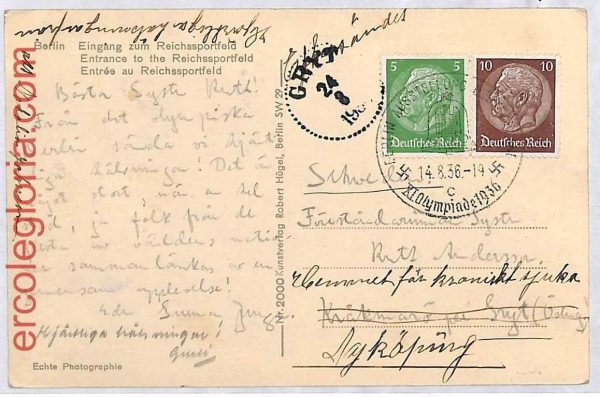 Berlin Eingang zum Reichssportfeld
Entrance to the Reichssportfeld
Entrée au Reichssportfeld
Bästa Syster Ruth!
Från det olympiska
Berlin sända vi hjärt
hälsningar! Det är
något stort, när en hel
ja folk från de
världens
sammanlänkas av en
upplevelse!
Hjärtliga hälsningar!
Echte Photographie
Nr. 2000 Kunstverlag Robert Hügel, Berlin SW 29
ercolegloria.com
GRYT
24
8
5 5
Deutsches Reich
10 10
Deutsches Reich
BERLIN
14.8.36-19
c
XI. Olympiade 1936
Schweden
Föreståndarinnan Syster
Ruth Andersson
Hemmet för kroniskt sjuka
Kråkmarö per Gryt (Österg.)
Nyköping